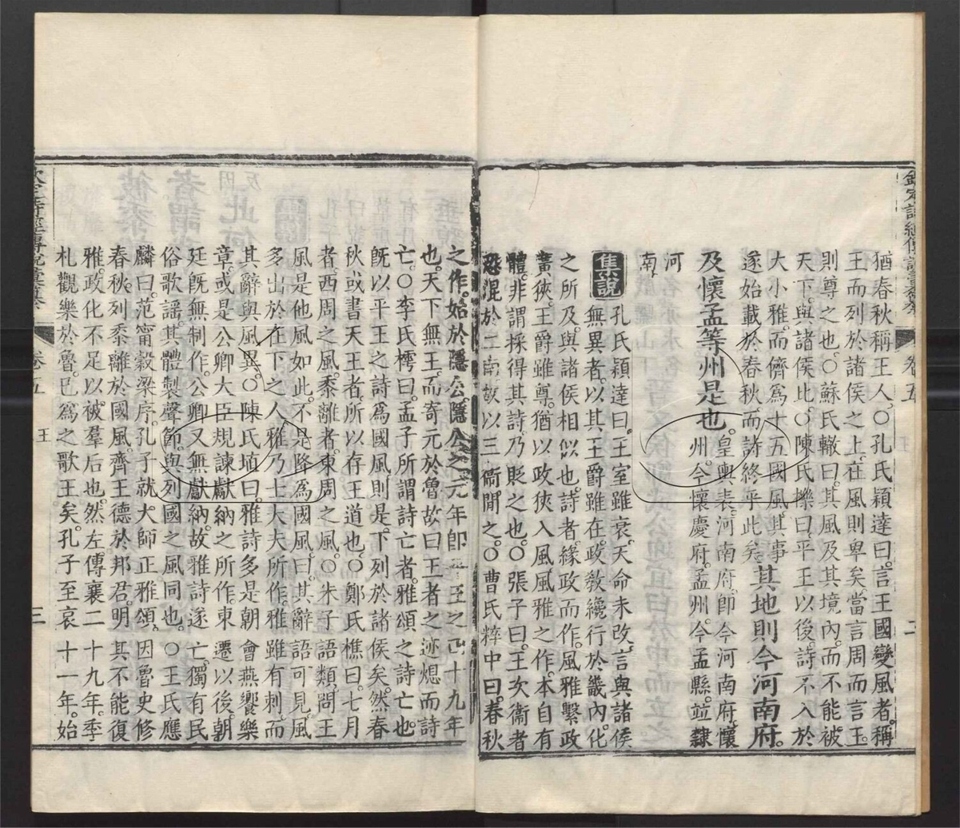 欽定詩經傳說彙纂 卷五 王 二
猶春秋稱王人〇孔氏穎達曰言王國變風者稱
王而列於諸侯之上在風則卑矣當言周而言王
則尊之也〇蘇氏轍曰其風及其境內而不能被
天下與諸侯比〇陳氏櫟曰平王以後詩不入於
大小雅而儕爲十五國風其事
遂始載於春秋而詩終乎此矣其地則今河南府
及懷孟等州是也皇輿表河南府即今河南府懷
州今懷慶府孟州今孟縣竝隸
河
南
集說孔氏穎達曰王室雖衰天命未改言與諸侯
無異者以其王爵雖在政敎纔行於畿內化
之所及與諸侯相似也詩者緣政而作風雅繫政
廣狹王爵雖尊猶以政狹入風風雅之作本自有
體非謂採得其詩乃貶之也〇張子曰王次衞者
恐混於二南故以三衞間之〇曹氏粹中曰春秋
之作始於隱公隱公之元年即平王之四十九年
也天下無王而寄元於魯故曰王者之迹熄而詩
亡〇李氏樗曰孟子所謂詩亡者雅頌之詩亡也
旣以平王之詩爲國風則是下列於諸侯矣然春
秋或書天王者所以存王道也〇鄭氏樵曰七月
者西周之風黍離者東周之風〇朱子語類問王
風是他風如此不是降爲國風曰其辭語可見風
多出於在下之人雅乃士大夫所作雅雖有刺而
其辭與風異〇陳氏埴曰雅詩多是朝會燕饗樂
章或是公卿大臣規諫獻納之所作東遷以後朝
廷旣無制作公卿又無獻納故雅詩遂亡獨有民
俗歌謠其體製聲節與列國之風同也〇王氏應
麟曰范甯穀梁序孔子就大師正雅頌因魯史修
春秋列黍離於國風齊王德於邦君明其不能復
雅政化不足以被羣后也然左傳襄二十九年季
札觀樂於魯已爲之歌王矣孔子至哀十一年始
卷五 王 三